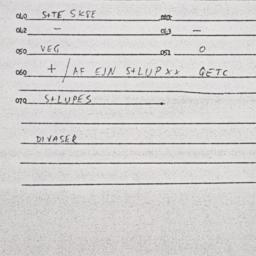 040 S+TE SKSE
042 – 043 –
050 VEG 051 0
060 + / AF EJN S+LUP XX GETC
070 S+LUPES
DIVASER